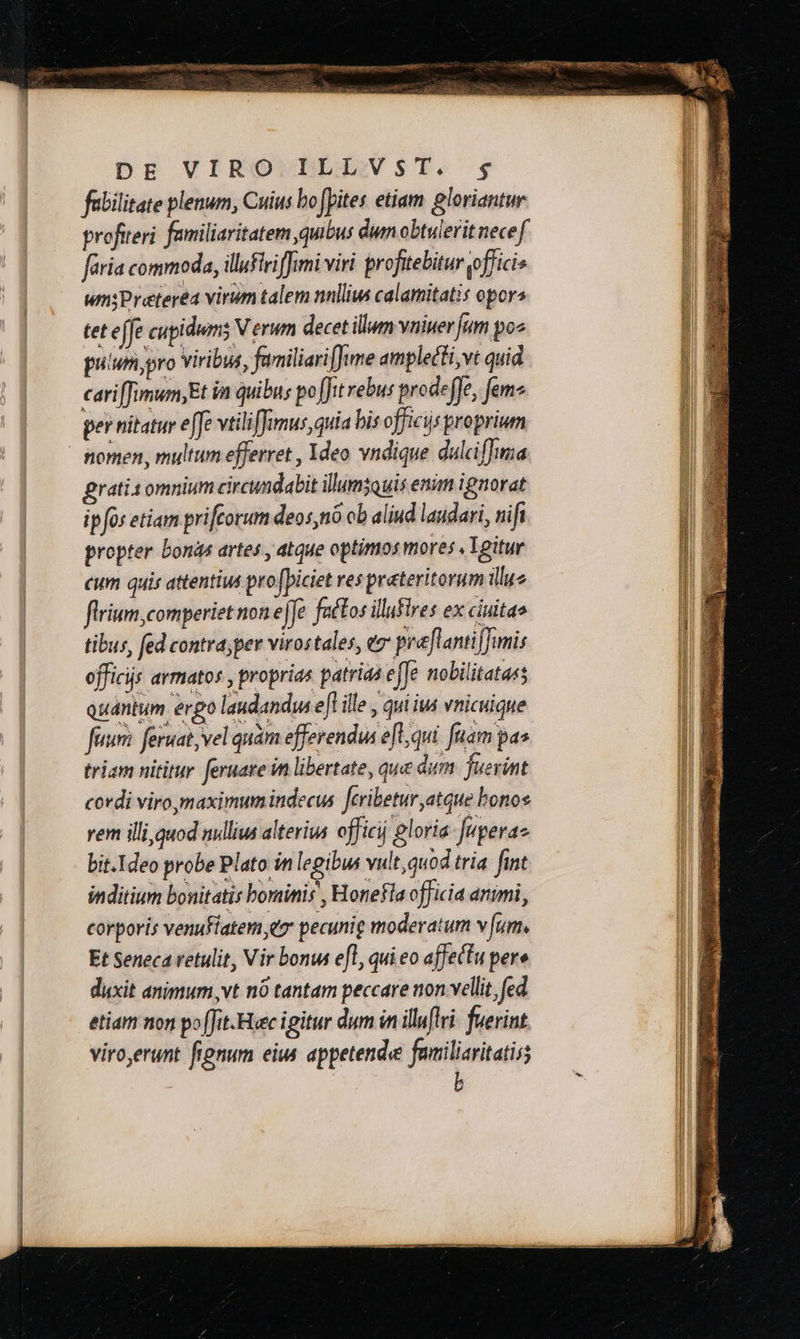 DE VIRO ILLVST. 5
ſabilitate plenum, Cuius hoſpites etiam gloriantur
profiteri familiaritatem, quibus dum obtulerit neceſ
ſaria commoda, illuſtriſſimi viri profitebitur, officio
um; Præterea virum talem nullius calamitatis opor⸗
tet eſſe cupidum; Verum decet illum vniuerſum po⸗
pulum, pro viribus, familiariſſime amplecti, vt quid
cariſſimum, Et in quibus poſſit rebus prodeſſe, ſem⸗
per nitatur eſſe vtiliſſimus, quia his officijs proprium
nomen, multum efferret, Ideo vndique dulciſſima
gratia omnium circundabit illum; quis enim ignorat
ipſos etiam priſcorum deos, nō ob aliud laudari, niſi
propter bonas artes, atque optimos mores, Igitur
cum quis attentius proſpiciet res præteritorum illu⸗
ſtrium, comperiet non eſſe factos illuſtres ex ciuita⸗
tibus, ſed contra, per viros tales, & præſtantiſſimis
officijs armatos, proprias patrias eſſe nobilitatas;
quantum ergo laudandus eſt ille, qui ius vnicuique
ſuum ſeruat, vel quàm efferendus eſt, qui ſuam pa⸗
triam nititur ſeruare in libertate, quæ dum fuerint
cordi viro, maximum indecus ſcribetur, atque hono⸗
rem illi, quod nullius alterius officij gloria ſupera⸗
bit. Ideo probe Plato in legibus vult, quod tria ſint
inditium bonitatis hominis, Honeſta officia animi,
corporis venuſtatem, & pecunię moderatum vſum.
Et Seneca retulit, Vir bonus eſt, qui eo affectu per⸗
duxit animum, vt nō tantam peccare non vellit, ſed
etiam non poſſit. Hæc igitur dum in illuſtri fuerint
viro, erunt ſignum eius appetendæ familiaritatis;
b